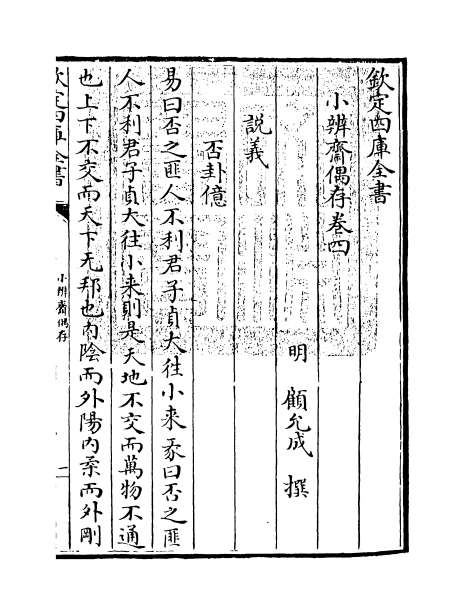 欽定四庫全書
小辨齋偶存卷四
明 顧允成 撰
說義
否卦億
易曰否之匪人不利君子貞大往小來彖曰否之匪
人不利君子貞大往小來則是天地不交而萬物不通
也上下不交而天下无邦也內陰而外陽內柔而外剛
欽定四庫全書
小辨齋偶存